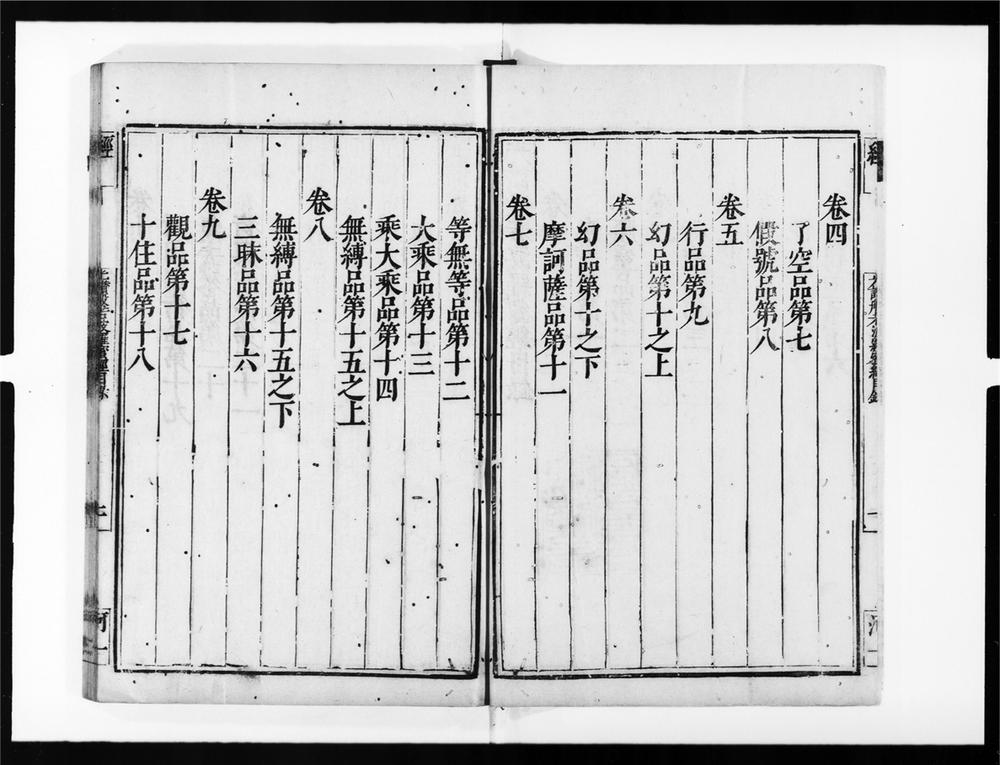 卷四
了空品第七
假號品第八
卷五
行品第九
幻品第十之上
卷六
幻品第十之下
摩訶薩品第十一
卷七
等無等品第十二
大乘品第十三
乘大乘品第十四
無縛品第十五之上
卷八
無縛品第十五之下
三昧品第十六
卷九
觀品第十七
十住品第十八
經
河一